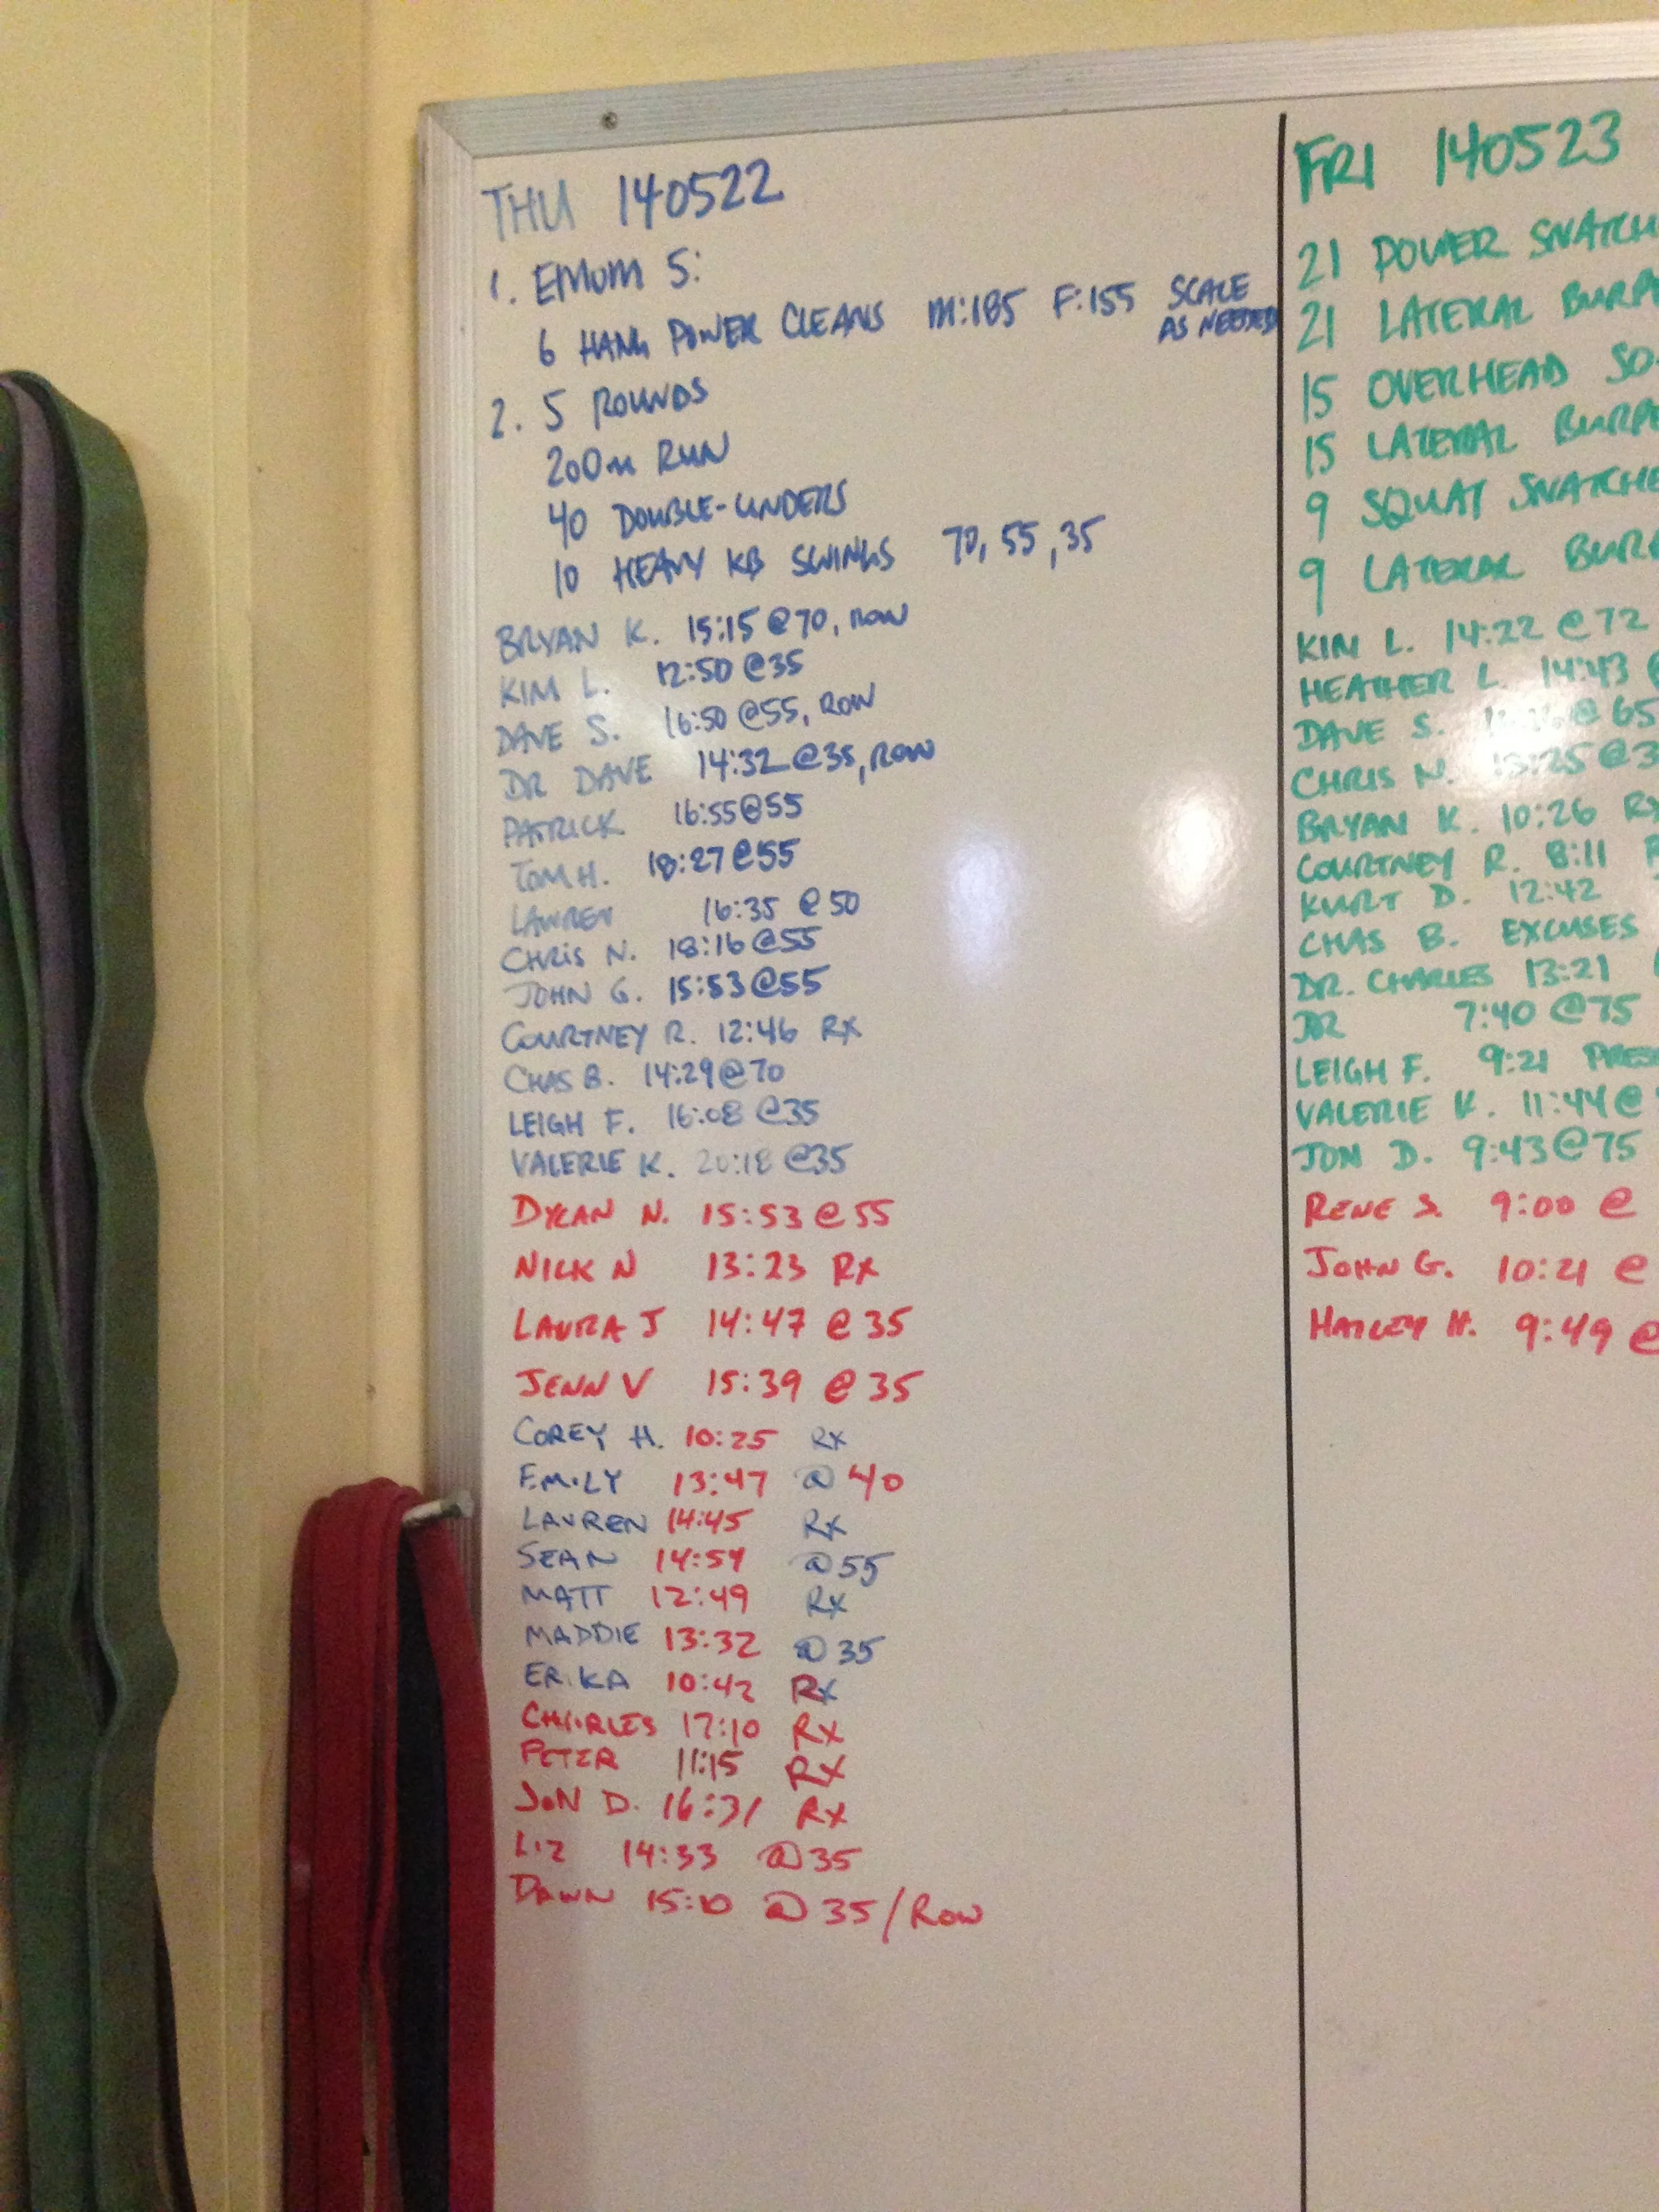 THU 140522
1. EMOM 5:
6 HANG POWER CLEANS M:185 F:155 SCALE
AS NEEDED
2. 5 ROUNDS
200m RUN
40 DOUBLE-UNDERS
10 HEAVY KB SWINGS 70, 55, 35
BRYAN K. 15:15 @70, ROW
KIM L. 12:50 @35
DAVE S. 16:50 @55, ROW
DR DAVE 14:32 @35, ROW
PATRICK 16:55@55
TOM H. 18:27@55
LAUREN 16:35 @50
CHRIS N. 18:16@55
JOHN G. 15:53@55
COURTNEY R. 12:46 RX
CHAS B. 14:29@70
LEIGH F. 16:08 @35
VALERIE K. 20:18 @35
DYLAN N. 15:53 @ 55
NICK N 13:23 RX
LAURA J 14:47 @ 35
JENN V 15:39 @ 35
COREY H. 10:25 RX
EMILY 13:47 @ 40
LAUREN 14:45 RX
SEAN 14:54 @55
MATT 12:49 RX
MADDIE 13:32 @35
ERIKA 10:42 RX
CHARLES 17:10 RX
PETER 11:15 RX
JON D. 16:31 RX
LIZ 14:33 @35
DAWN 15:10 @35/ROW
FRI 140523
21 POWER SNATCH
21 LATERAL BURP
15 OVERHEAD SQ
15 LATERAL BURP
9 SQUAT SNATCHE
9 LATERAL BURP
KIM L. 14:22 @72
HEATHER L. 14:43 @
DAVE S. @65
CHRIS N. 13:25@3
BRYAN K. 10:26 RX
COURTNEY R. 8:11 R
KURT D. 12:42
CHAS B. EXCUSES
DR. CHARLES 13:21
7:40 @75
LEIGH F. 9:21 PRES
VALERIE K. 11:44@
JON D. 9:43@75
RENE S. 9:00 @
JOHN G. 10:21 @
HAILEY H. 9:49 @